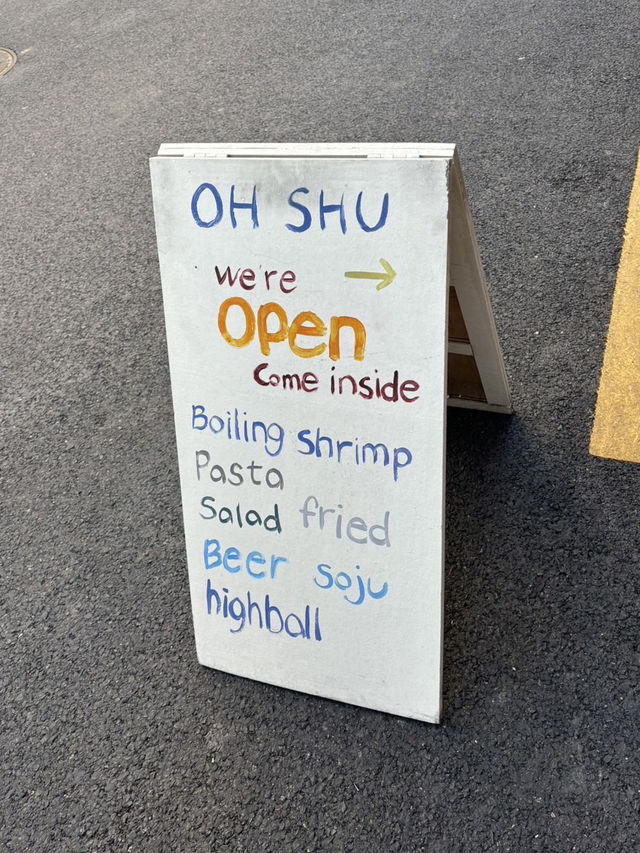 OH SHU
we're →
Open
Come inside
Boiling shrimp
Pasta
Salad fried
Beer soju
highball